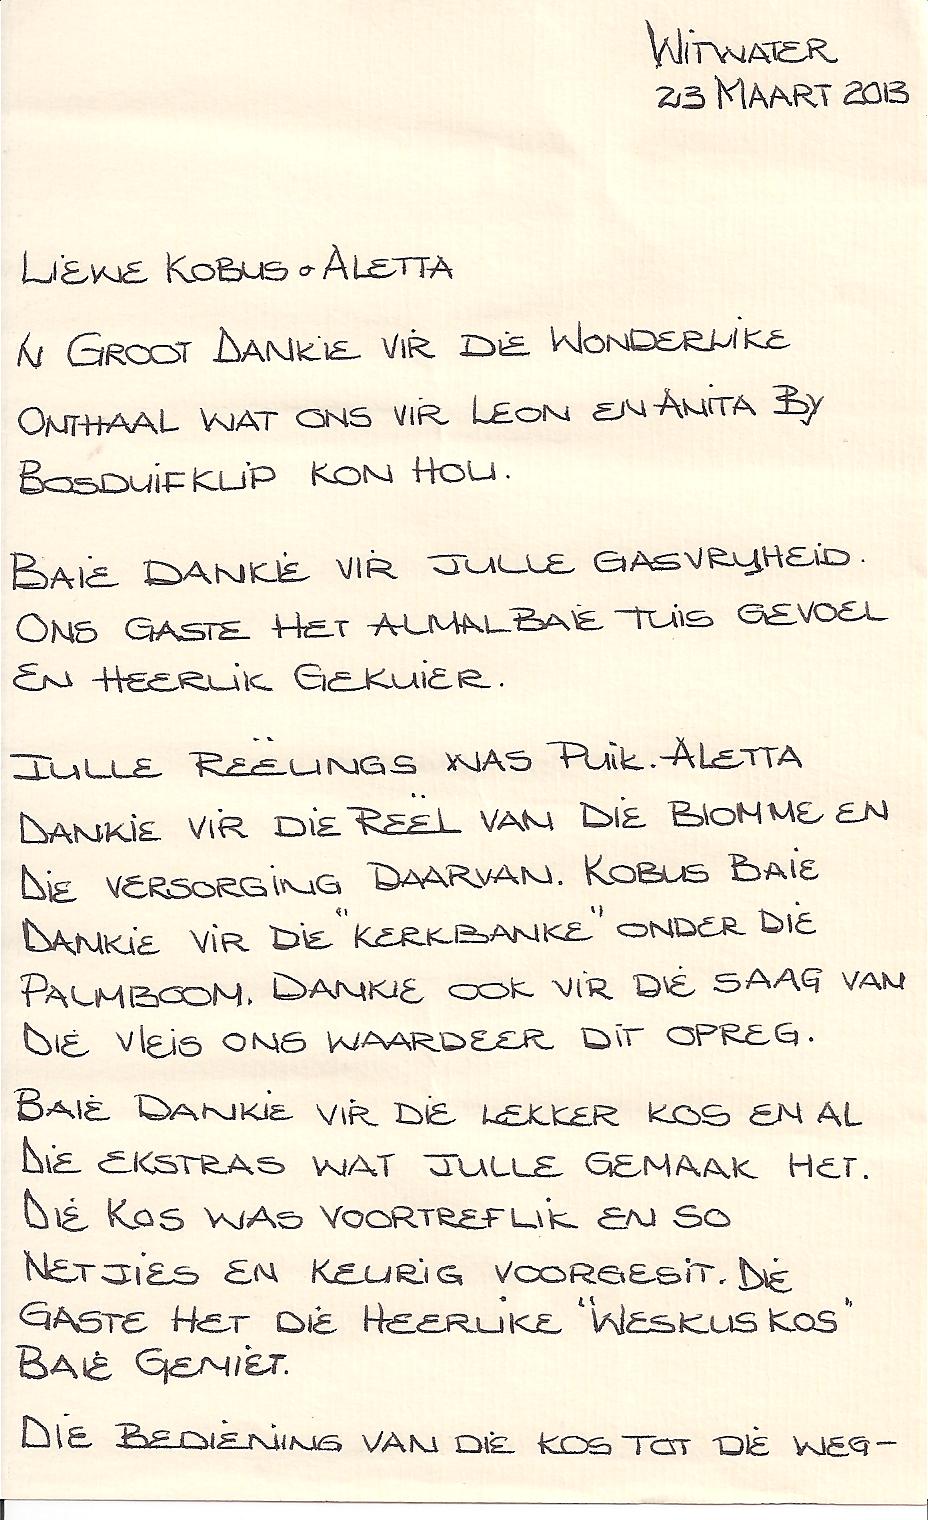 WITWATER
23 MAART 2013
LIEWE KOBUS & ALETTA
'N GROOT DANKIE VIR DIE WONDERLIKE
ONTHAAL WAT ONS VIR LEON EN ANITA BY
BOSDUIFKLIP KON HOU.
BAIE DANKIE VIR JULLE GASVRYHEID.
ONS GASTE HET ALMAL BAIE TUIS GEVOEL
EN HEERLIK GEKUIER.
JULLE REËLINGS WAS PUIK. ALETTA
DANKIE VIR DIE REËL VAN DIE BLOMME EN
DIE VERSORGING DAARVAN. KOBUS BAIE
DANKIE VIR DIE "KERKBANKE" ONDER DIE
PALMBOOM. DANKIE OOK VIR DIE SAAG VAN
DIE VLEIS ONS WAARDEER DIT OPREG.
BAIE DANKIE VIR DIE LEKKER KOS EN AL
DIE EKSTRAS WAT JULLE GEMAAK HET.
DIE KOS WAS VOORTREFLIK EN SO
NETJIES EN KEURIG VOORGESIT. DIE
GASTE HET DIE HEERLIKE "WESKUS KOS"
BAIE GENIET.
DIE BEDIENING VAN DIE KOS TOT DIE WEG-